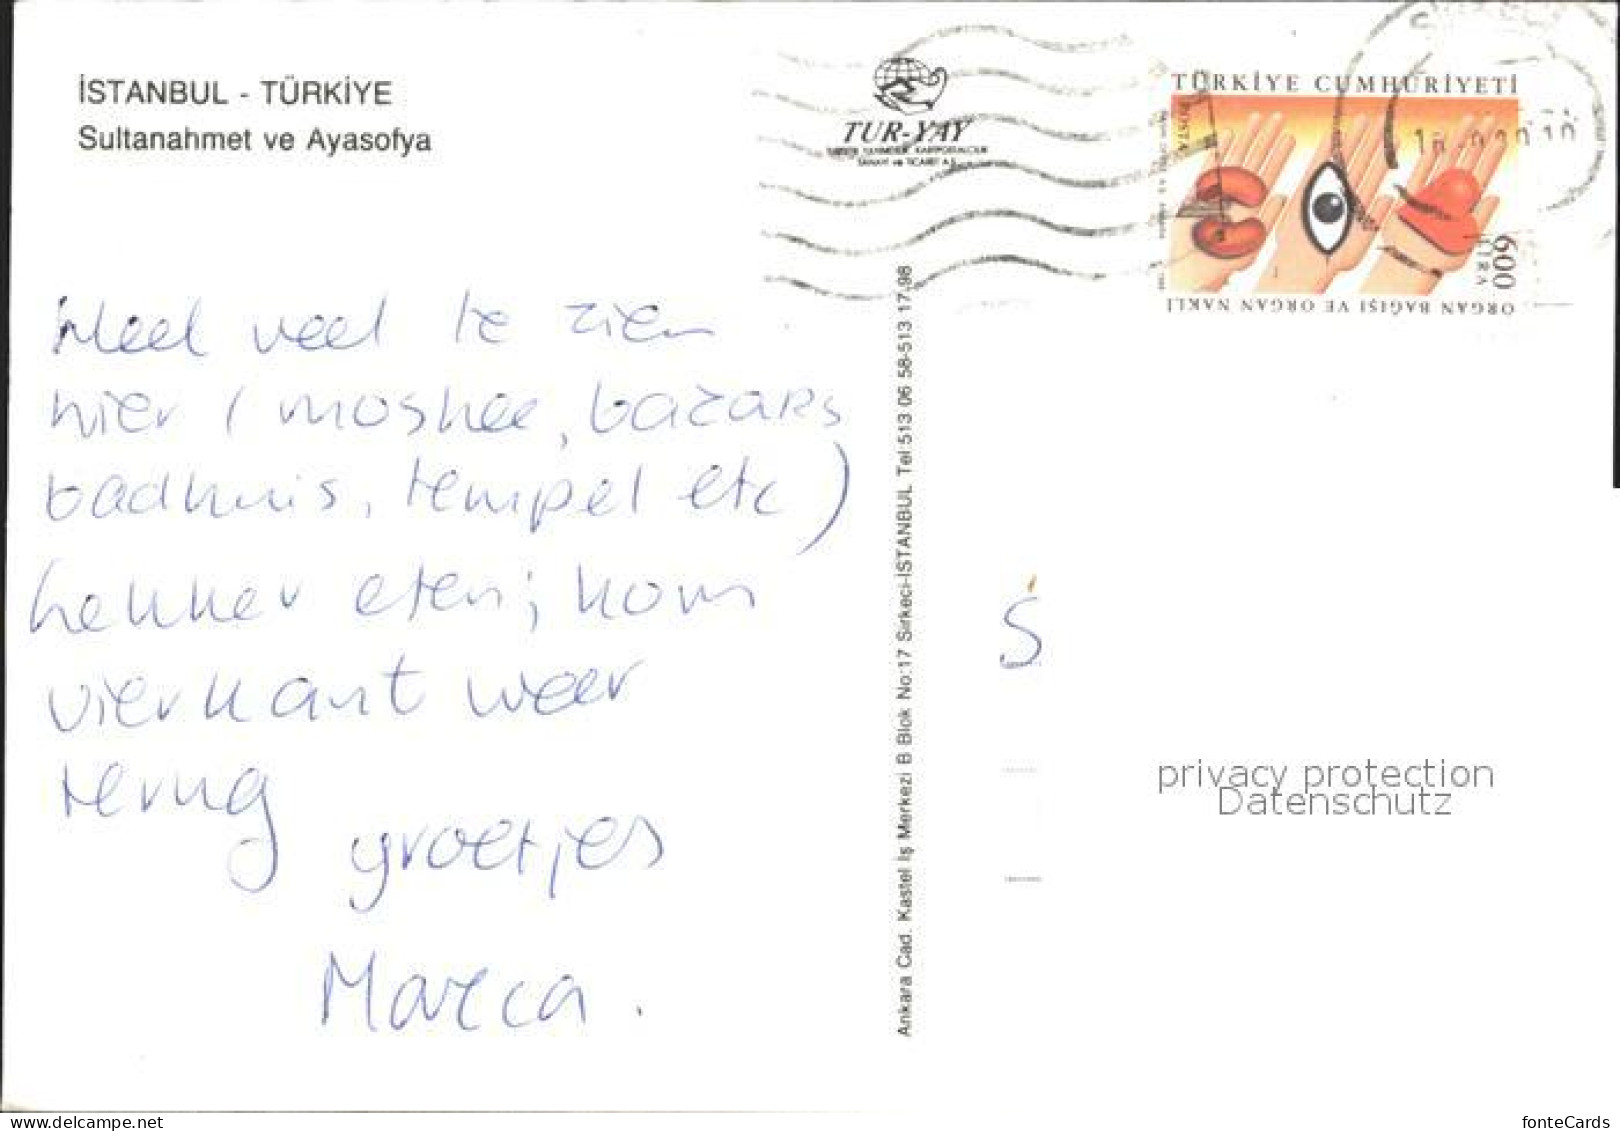 İSTANBUL - TÜRKİYE
Sultanahmet ve Ayasofya
TUR-YAY
SANAYİ ve TİCARET A.Ş.
TÜRKİYE CUMHURİYETİ
POSTA
600
LİRA
ORGAN BAĞIŞI VE ORGAN NAKLİ
Heel veel te zien
hier (moskee, bazaars
badhuis, tempel etc)
lekker eten; kom
vierkant weer
terug
groetjes
Marca.
Ankara Cad. Kastel İş Merkezi B Blok No:17 Sirkeci-İSTANBUL Tel:513 06 58-513 17 98
S
privacy protection
Datenschutz
fonteCards